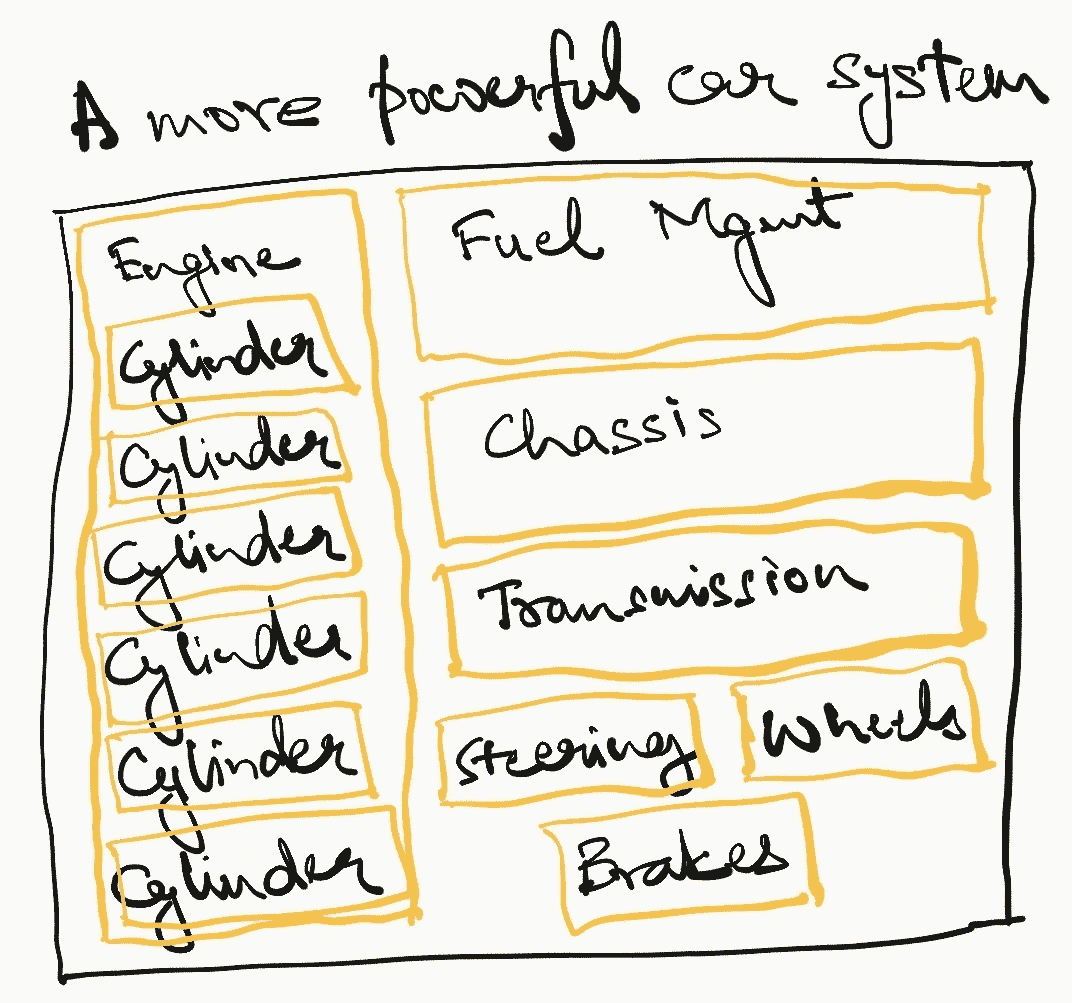 A more powerful car system
Engine
Cylinder
Cylinder
Cylinder
Cylinder
Cylinder
Cylinder
Fuel Mgmt
Chassis
Transmission
Steering
Wheels
Brakes